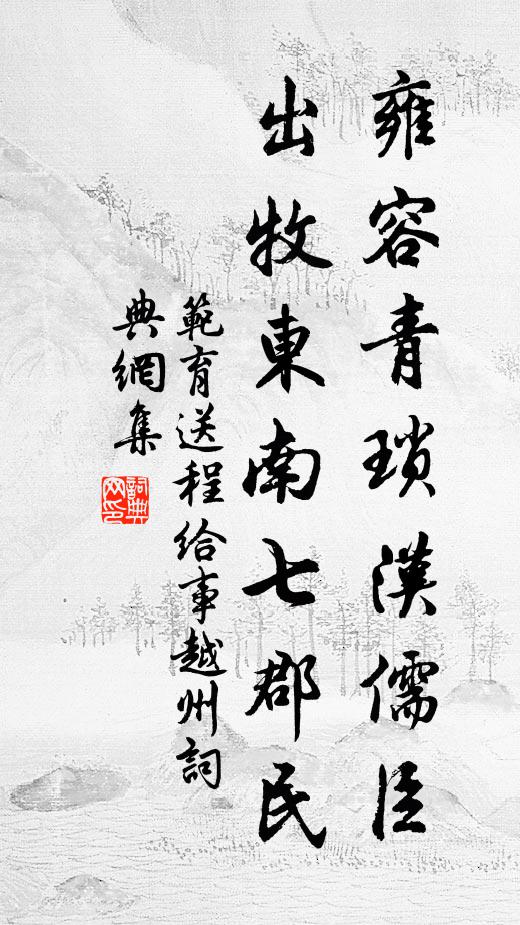 雍容青瑣漢儒臣
出牧東南七郡民
範育送程給事越州詞
典網集
詞典網印